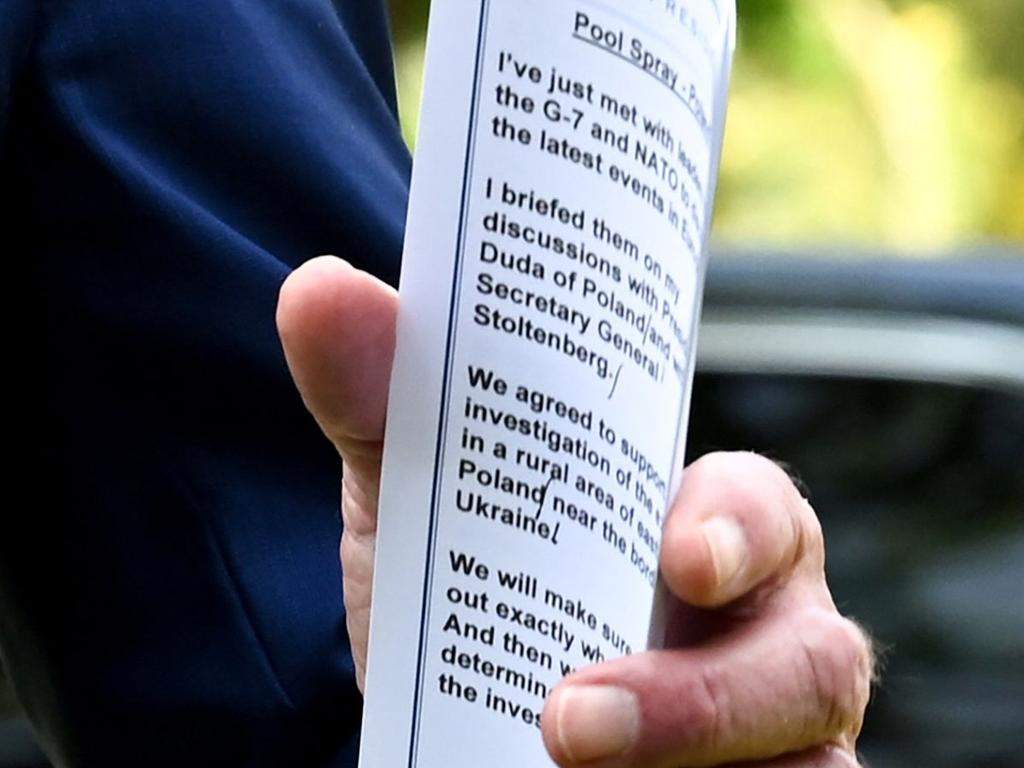 Pool Spray -
I've just met with
the G-7 and NATO to
the latest events in
I briefed them on my
discussions with
Duda of Poland/and
Secretary General
Stoltenberg./
We agreed to support
investigation of the
in a rural area of
Poland/near the
Ukraine/
We will make sure
out exactly
And then
the